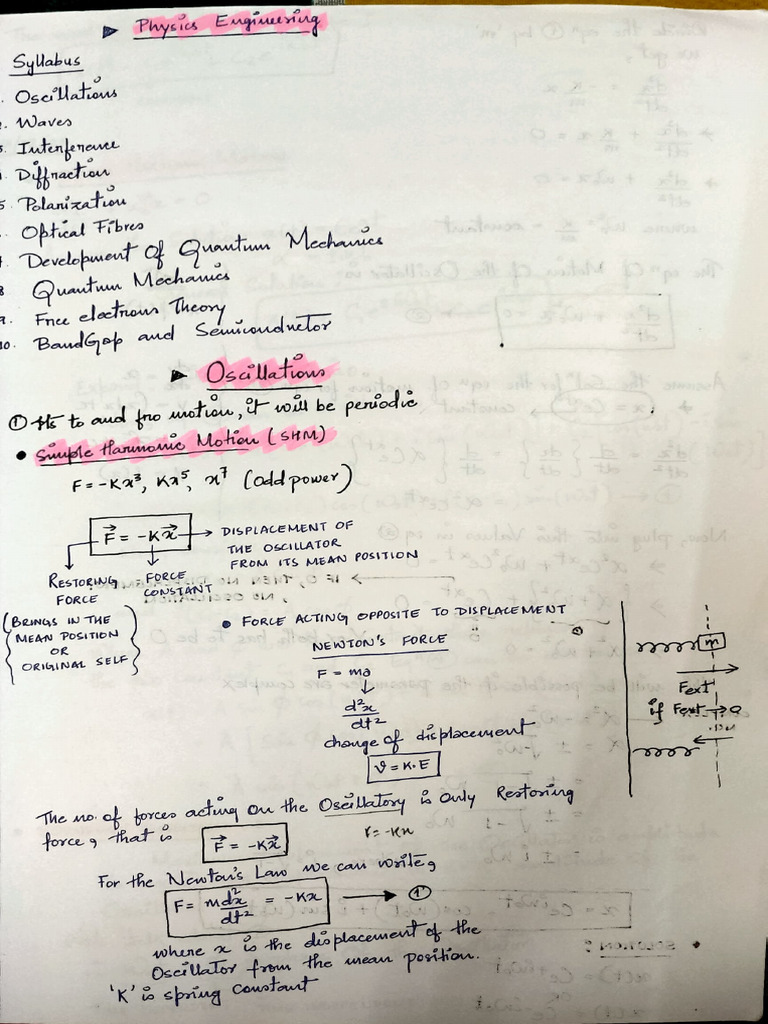 ▶ Physics Engineering
Syllabus
. Oscillations
2. Waves
3. Interference
. Diffraction
5. Polarization
. Optical Fibres
7. Development of Quantum Mechanics
8 Quantum Mechanics
9. Free electrons Theory
10. BandGap and Semiconductor
▶ Oscillations
① Its to and fro motion, it will be periodic
• Simple Harmonic Motion (SHM)
F = -Kx³, Kx⁵, x⁷ (odd power)
F⃗ = -Kx⃗ → DISPLACEMENT OF
THE OSCILLATOR
FROM ITS MEAN POSITION
RESTORING FORCE
FORCE CONSTANT
(BRINGS IN THE
MEAN POSITION
OR
ORIGINAL SELF)
• FORCE ACTING OPPOSITE TO DISPLACEMENT
NEWTON'S FORCE
F = ma
d²x/dt²
change of displacement
v = K.E
m
Fext
if Fext → 0
The no. of forces acting on the Oscillatory is only Restoring
force, that is F⃗ = -Kx⃗
F = -Kx
For the Newton's Law we can write,
F = mdx²/dt² = -Kx → ①
where x is the displacement of the
Oscillator from the mean position.
'K' is spring constant